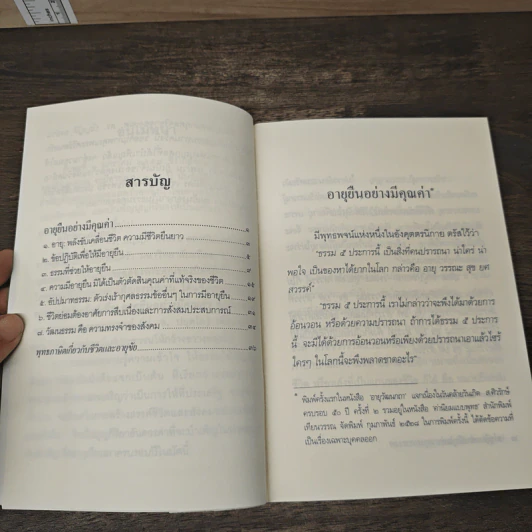 สารบัญ
อายุยืนอย่างมีคุณค่า ๑
๑. อายุ: พลังขับเคลื่อนชีวิต ความมีชีวิตยืนยาว
๒. ข้อปฏิบัติเพื่อให้มีอายุยืน ๕
๓. ธรรมที่ช่วยให้อายุยืน
๔. ความมีอายุยืน มิได้เป็นตัวตัดสินคุณค่าที่แท้จริงของชีวิต
๕. อัปปมาทธรรม: ตัวเร่งเร้ากุศลธรรมข้ออื่นๆ ในการมีอายุยืน
๖. ชีวิตย่อมต้องอาศัยการสืบเนื่องและการสั่งสมประสบการณ์
๘. วัฒนธรรม คือ ความทรงจำของสังคม
พุทธภาษิตเกี่ยวกับชีวิตและอายุขัย
อายุยืนอย่างมีคุณค่า*
มีพุทธพจน์แห่งหนึ่งในอังคุตตรนิกาย ตรัสไว้ว่า
"ธรรม ๕ ประการนี้ เป็นสิ่งที่คนปรารถนา น่าใคร่ น่า
พอใจ เป็นของหาได้ยากในโลก กล่าวคือ อายุ วรรณะ สุข ยศ
สวรรค์"
"ธรรม ๕ ประการนี้ เราไม่กล่าวว่าจะพึงได้มาด้วยการ
อ้อนวอน หรือด้วยความปรารถนา ถ้าการได้ธรรม ๕ ประการ
นี้ จะมีได้ด้วยการอ้อนวอนหรือเพียงด้วยปรารถนาเอาแล้วไซร้
ใครๆ ในโลกนี้จะพึงพลาดชาดอะไร"
* พิมพ์ครั้งแรกในหนังสือ
ครบรอบ ๕๐ ปี ครั้งที่ ๒ รวมอยู่ในหนังสือ 'ค่านิยมแบบพุทธ' สำนักพิมพ์
เทียนวรรณ จัดพิมพ์ กุมภาพันธ์ ๒๕๒๘ ในการพิมพ์ครั้งนี้ ได้ตัดข้อความที่
เป็นเรื่องเฉพาะบุคคลออก